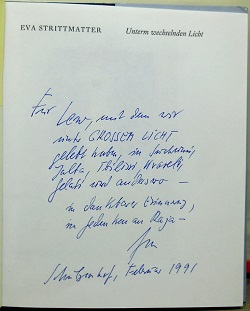 EVA STRITTMATTER Unterm wechselnden Licht
Für Lew, mit dem wir
unter GROSSEM LICHT
gelebt haben, in Suchumi,
Jalta, Tbilissi,
Gelati und anderswo –
in dankbarer Erinnerung,
in Gedenken an Raja –
Eva
Schulzenhof, Februar 1991